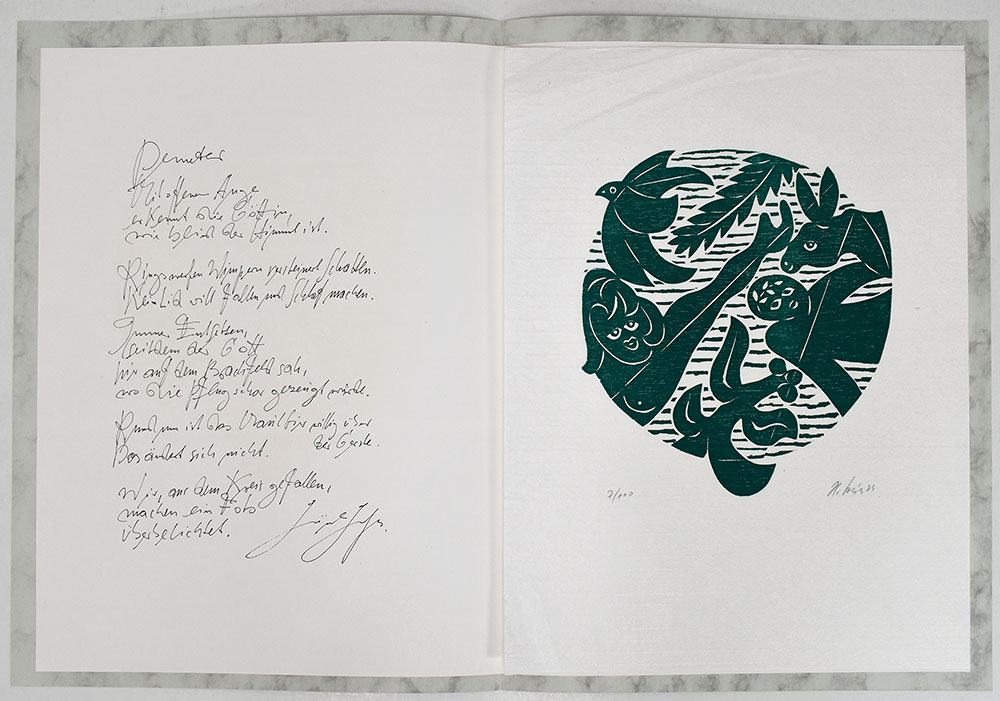 Demeter
Mit offenem Auge
erkennt die Göttin,
wie blind der Himmel ist.
Rings werfen Wimpern versteinert Schatten.
Kein Lid will fallen und Schlaf machen.
Immer Entsetzen,
seitdem der Gott
hier auf dem Brachfeld sah,
wo die Pflugschar gezeugt wurde.
Rundum ist das Maultier willig über
der Gerste.
Das ändert sich nicht.
Wir, aus dem Kreis gefallen,
machen ein Foto
überbelichtet.
7/100